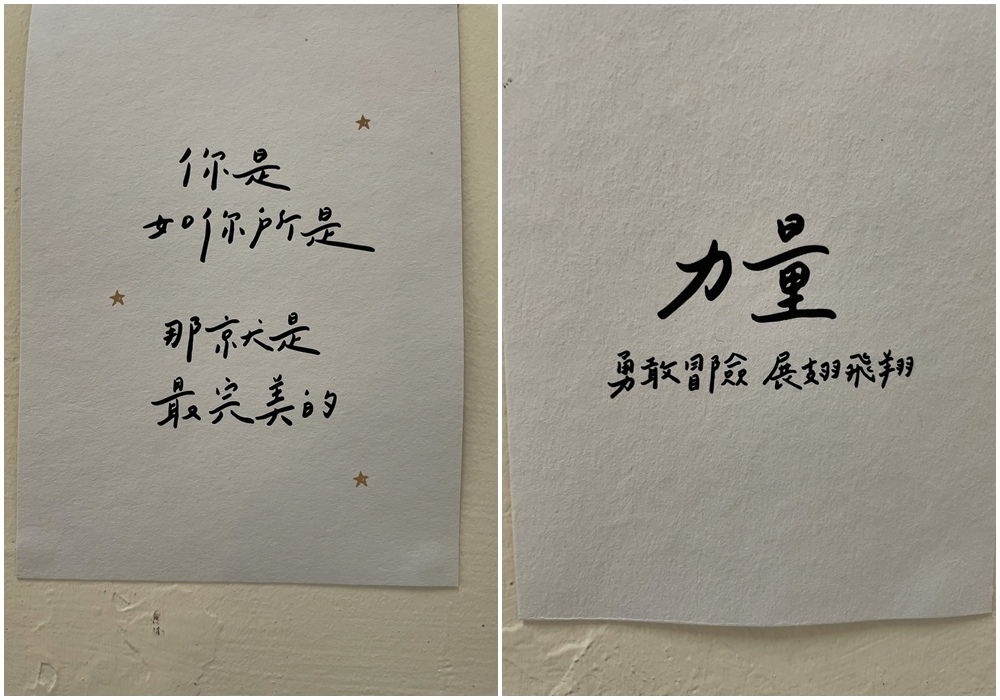 你是
如你所是
那就是
最完美的
力量
勇敢冒險 展翅飛翔